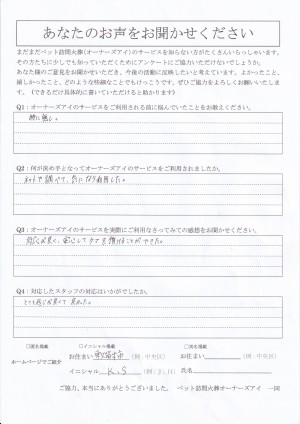 あなたのお声をお聞かせください
まだまだペット訪問火葬(オーナーズアイ)のサービスを知らない方がたくさんいらっしゃいます。
その方たちに少しでも知っていただくためにアンケートにご協力いただけないでしょうか。
あなた様のご意見をお聞かせいただき、今後の活動に反映したいと考えています。よかったこと、
嬉しかったこと、どのような些細なことでもけっこうです。ぜひご協力をよろしくお願いいたしま
す。(できるだけ具体的に書いていただけると助かります)
Q1：オーナーズアイのサービスをご利用される前に悩んでいたことをお教えください。
特に無し。
Q2：何が決め手となってオーナーズアイのサービスをご利用されましたか。
ネットで調べて、気になり利用した。
Q3：オーナーズアイのサービスを実際にご利用なさってみての感想をお聞かせください。
対応が良く、安心して
を預けることができた。
Q4：対応したスタッフの対応はいかがでしたか。
とても感じが良くて
□匿名掲載 □イニシャル掲載 □実名掲載
ホームページでご紹介
お住まい
(例：中央区) お住まい (例：中央区)
イニシャル K.S (例：S.H) 氏名
ご協力、本当にありがとうございました。 ペット訪問火葬オーナーズアイ 一同